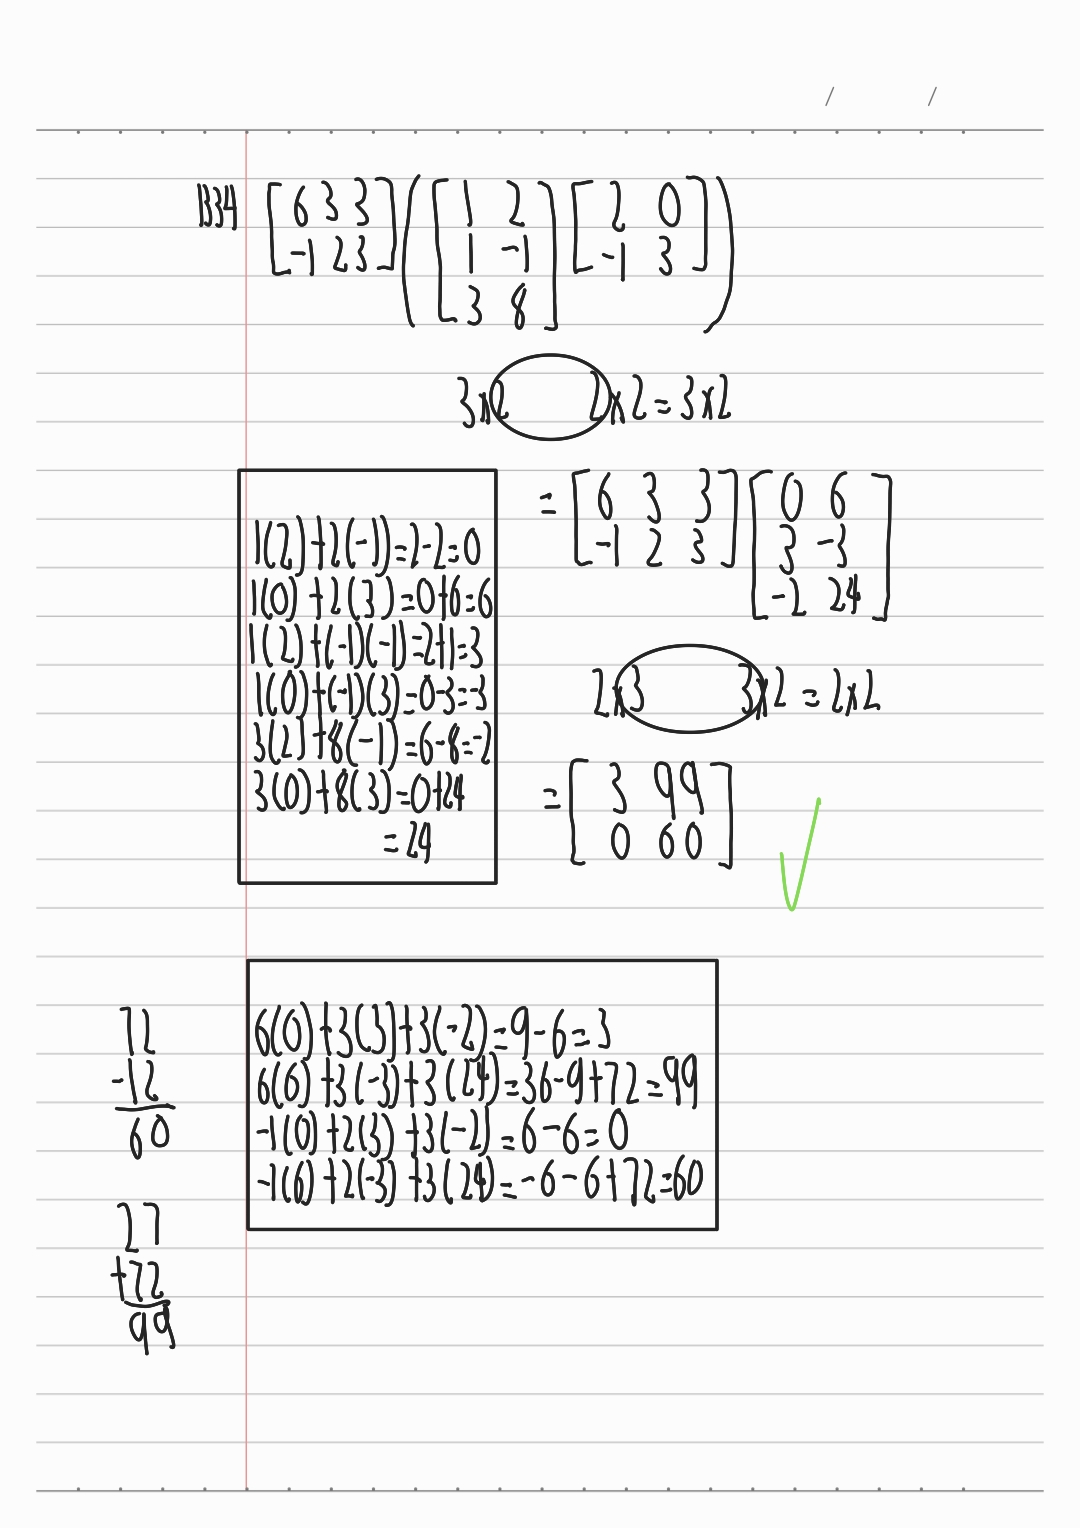 1334 [6 3 3
-1 2 3] ([1 2
1 -1
3 8] [2 0
-1 3])
3x2 2x2 = 3x2
1(2)+2(-1)=2-2=0
1(0)+2(3)=0+6=6
1(2)+(-1)(-1)=2+1=3
1(0)+(-1)(3)=0-3=-3
3(2)+8(-1)=6-8=-2
3(0)+8(3)=0+24
=24
= [6 3 3
-1 2 3] [0 6
3 -3
-2 24]
2x3 3x2 = 2x2
= [3 99
0 60]
6(0)+3(3)+3(-2)=9-6=3
6(6)+3(-3)+3(24)=36-9+72=99
-1(0)+2(3)+3(-2)=6-6=0
-1(6)+2(-3)+3(24)=-6-6+72=60
72
-12
60
27
+72
99